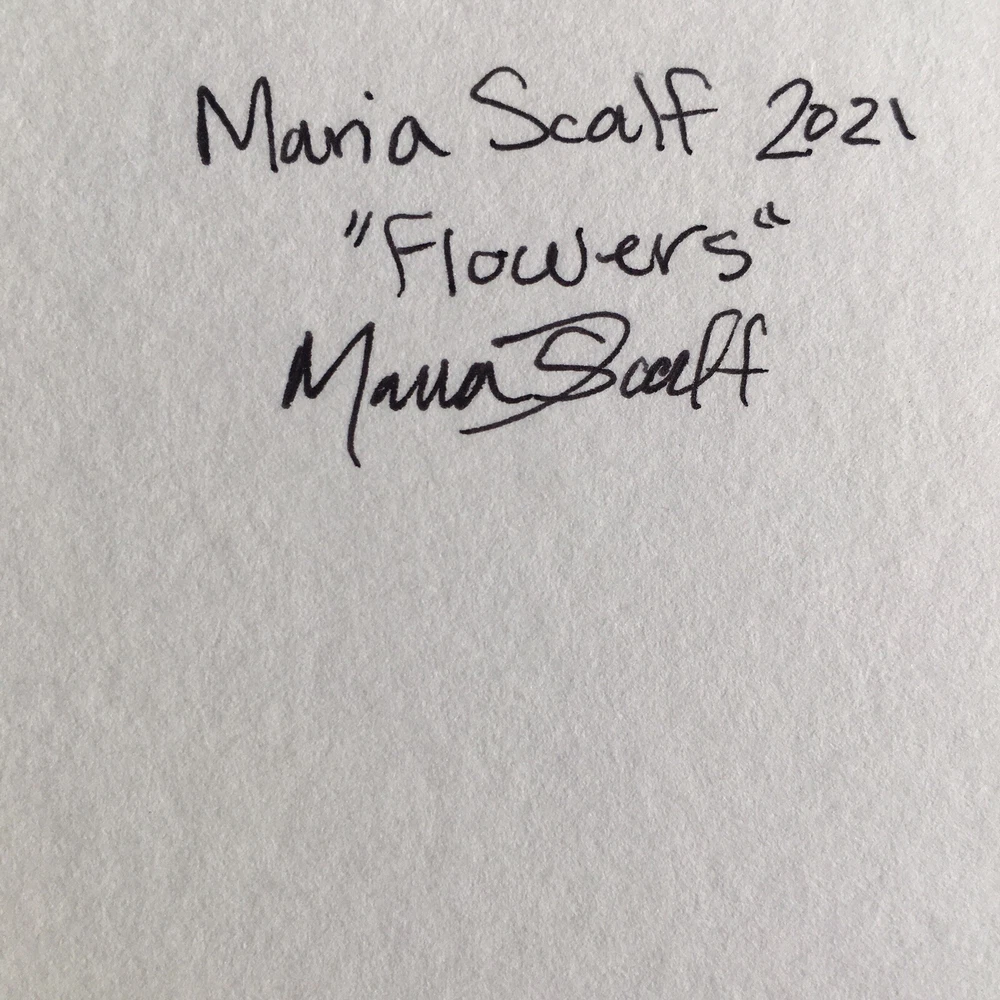 Maria Scalf 2021
"Flowers"
Maria Scalf